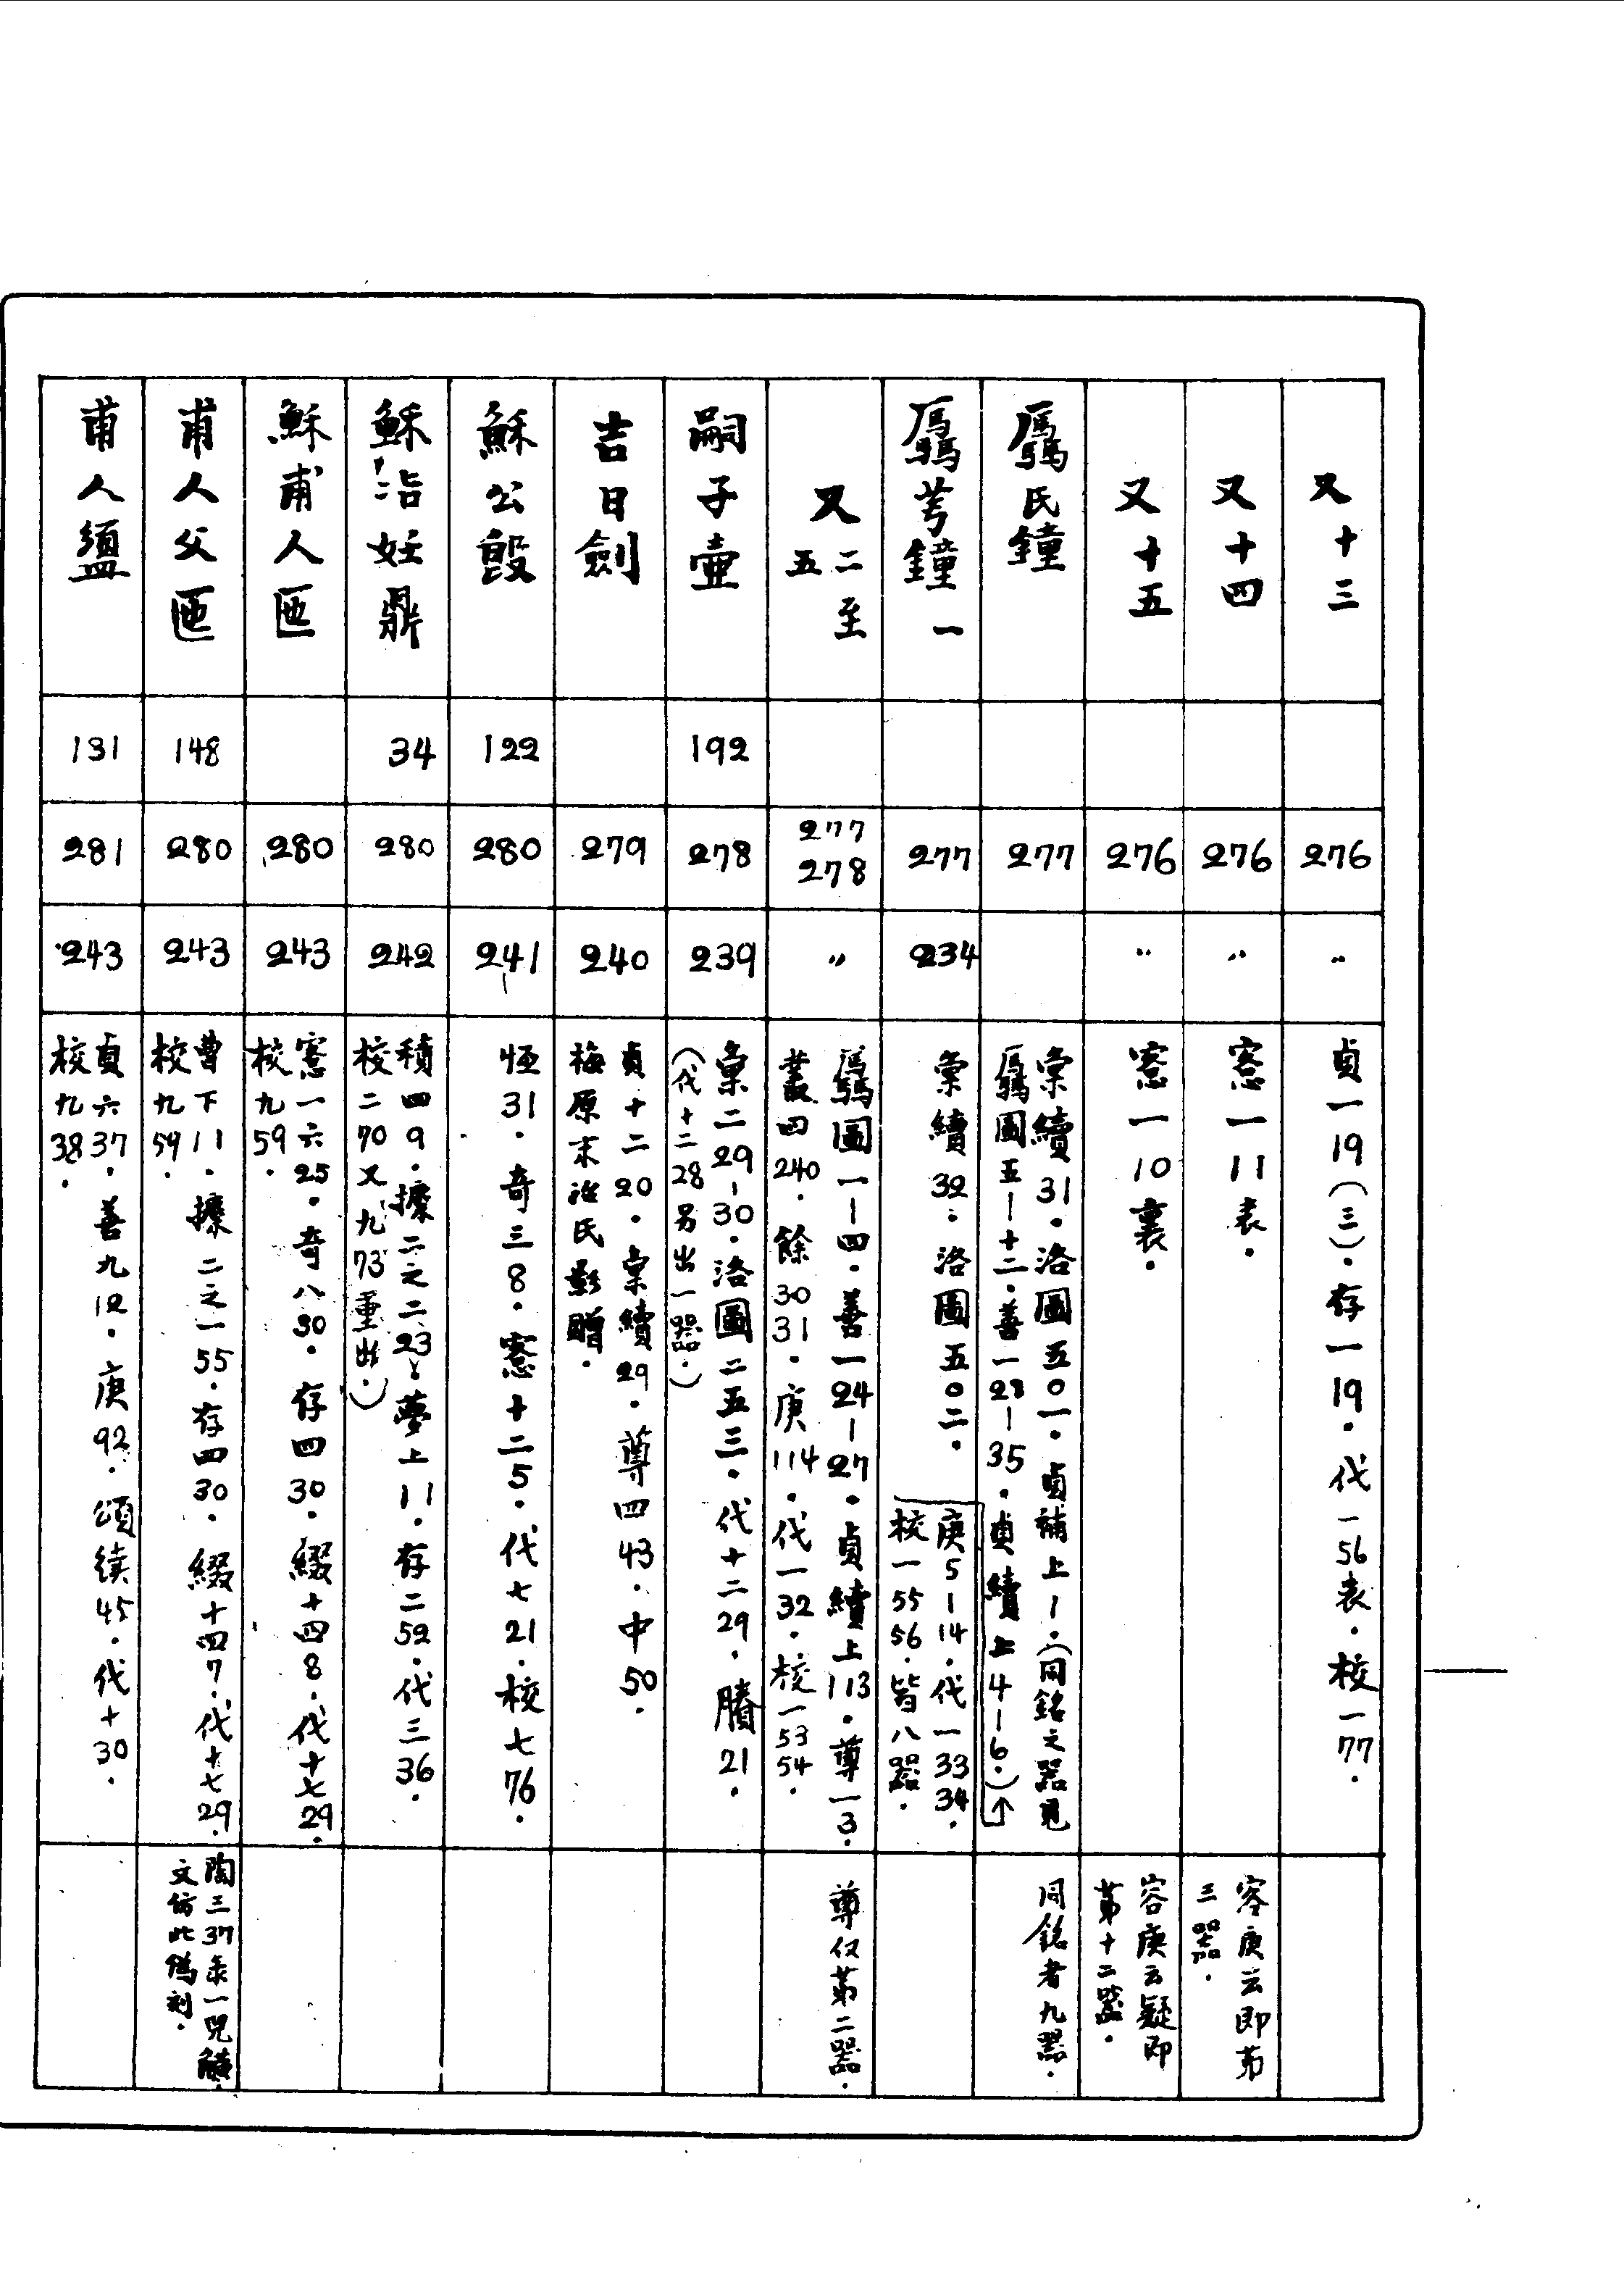 又十三
276
〃
貞一19(三)．存一19．代一56表．校一77．
又十四
276
〃
愙一11表．
容庚云即苐
三器．
又十五
276
〃
愙一10裏．
容庚云疑即
苐十二器．
氏鐘
277
彙續31．洛圖五〇一．貞補上1．(同銘之器見
圖五—十二．善一28—35．貞續上4—6．)↑
同銘者九器．
鐘一
277
234
彙續32．洛圖五〇二．
庚5—14．代一33 34．
校一55 56．皆八器．
又二至
五
277
278
〃
圖一—四．善一24—27．貞續上113．尊一3．
叢四240．餘30 31．庚114．代一32．校一53 54．
尊仅苐二器．
嗣子壺
192
278
239
彙二29-30．洛圖二五三．代十二29．賸21．
(代十二28另出一器．)
吉日劍
279
240
貞十二20．彙續29．尊四43．中50．
梅原末治氏影贈．
穌公𣪘
122
280
241
恆31．奇三8．愙十二5．代七21．校七76．
穌冶妊鼎
34
280
242
積四9．攈二之二23．夢上11．存二52．代三36．
校二70又九73重出．)
穌甫人匜
280
243
愙一六25．奇八30．存四30．綴十四8．代十七29．
校九59．
甫人父匜
148
280
243
曹下11．攈二之一55．存四30．綴十四7．代十七29．
校九59．
陶三37彔一兕觥
文仿此僞刻．
甫人盨
131
281
243
貞六37．善九12．庚92．頌續45．代十30．
校九38．